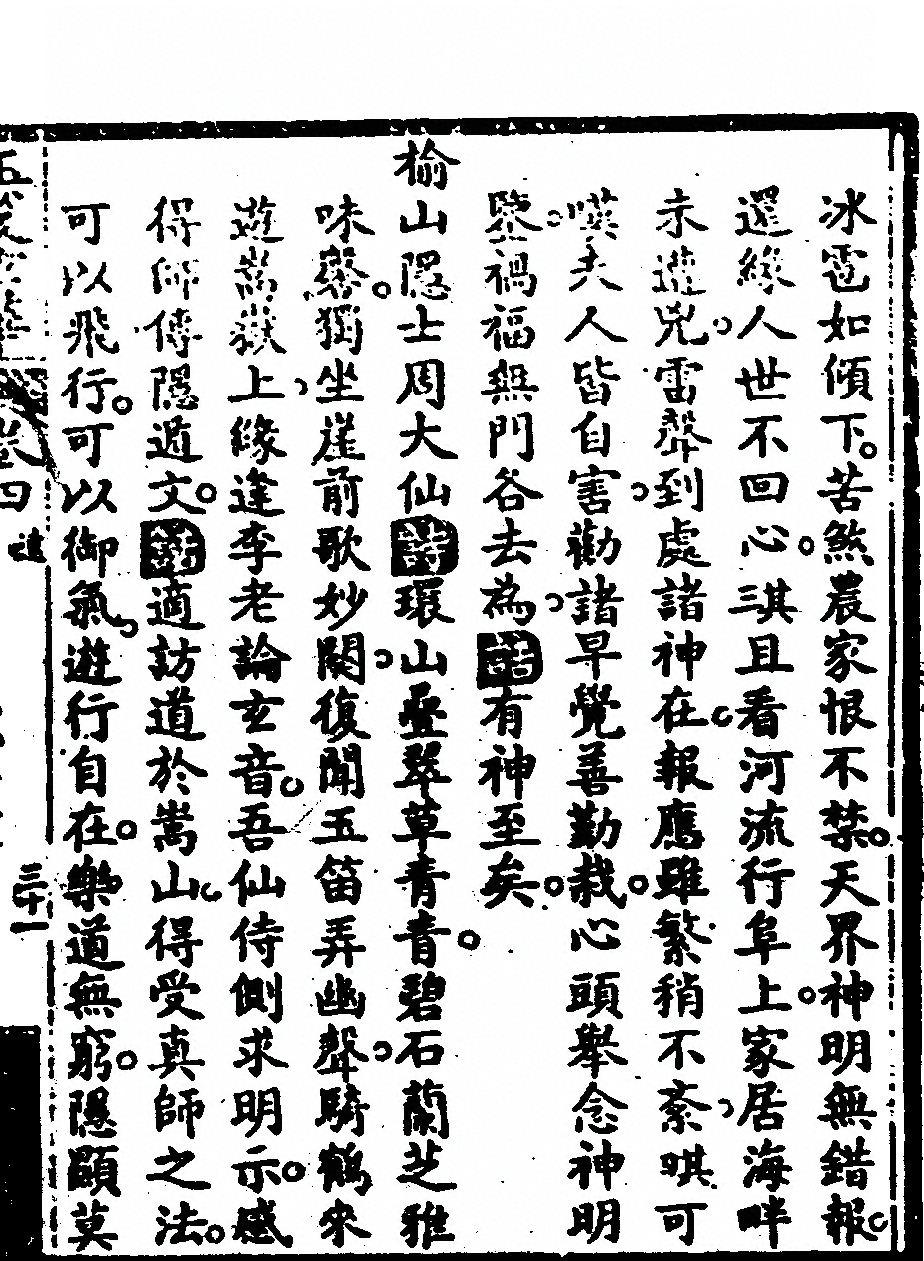 冰雹如傾下。苦煞農家恨不禁。天界神明無錯報。
還緣人世不回心。琪且看河流行阜上。家居海畔
未遭兇。雷聲到處諸神在。報應雖繁稍不紊。琪可
嘆夫人皆自害。勸諸早覺善勤栽。心頭舉念神明
鑒。禍福無門咎去為。話有神至矣。
榆山隱士周大仙詩環山疊翠草青青。碧石蘭芝雅
味馨。獨坐崖前歌妙闋。復聞玉笛弄幽聲。騎鶴來
遊嵩嶽上。緣逢李老論玄音。吾仙侍側求明示。感
得師傳隱遁文。話適訪道於嵩山。得受真師之法。
可以飛行。可以御氣。遊行自在。樂道無窮。隱顯莫
卷四
三十一